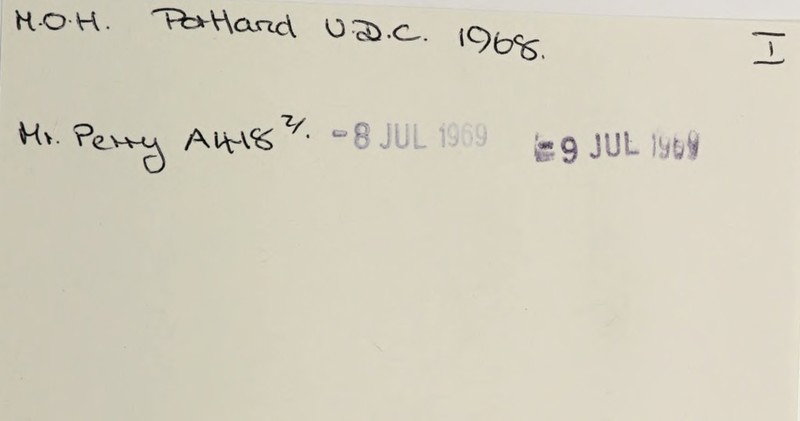 M.O.H. Portland U.D.C. 1968. I
Mr. Perry A418 2/. -8 JUL 1969 -9 JUL 1969